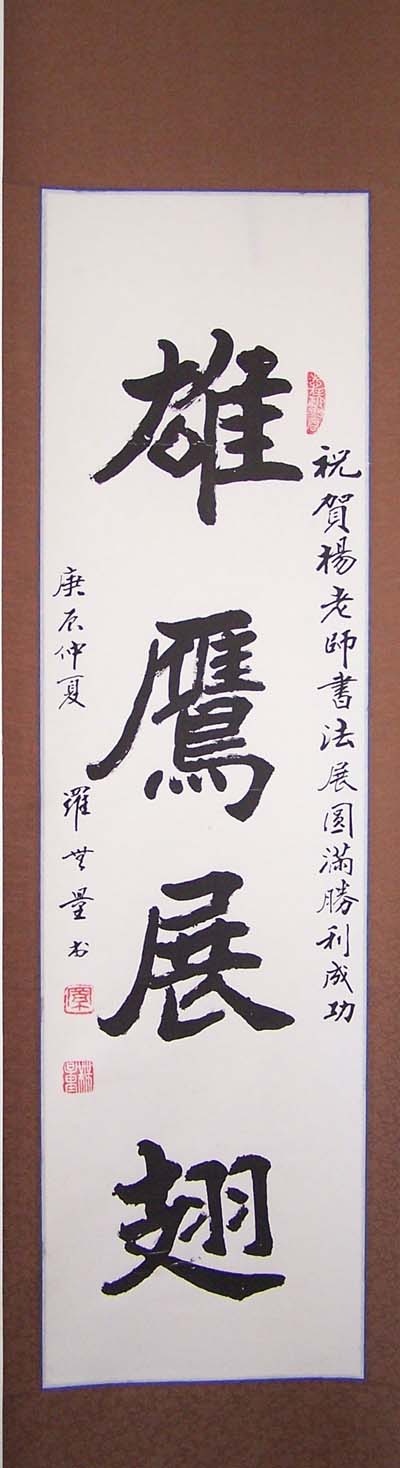 祝賀楊老師書法展圓滿勝利成功
雄鷹展翅
庚辰仲夏 羅 量书